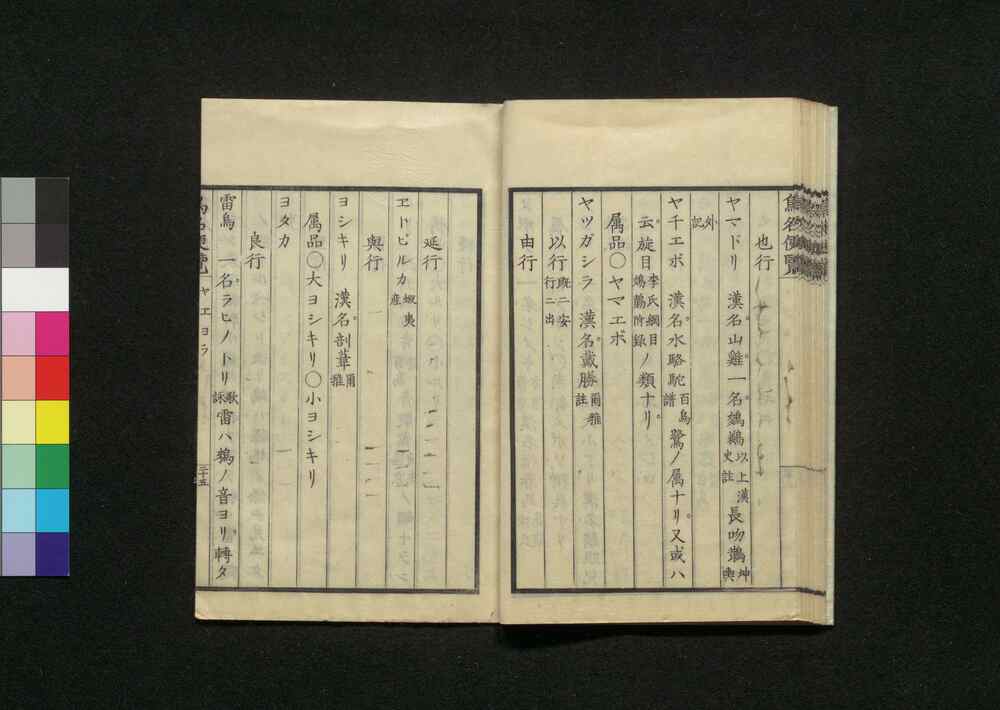 鳥名便覧
也行
ヤマドリ 漢名山雞一名鵕鸃以上漢史註長吻鷮坤輿
外記
ヤ千エボ 漢名水略駝百鳥譜鷺ノ属ナリ又或ハ
云旋目李氏綱目鵁鶄附録ノ類ナリ
属品〇ヤマエボ
ヤツガシラ 漢名戴勝爾雅註
以行既ニ安行ニ出
由行
延行
ヱドピルカ蝦夷産
與行
ヨシキリ 漢名剖葦爾雅
属品〇大ヨシキリ〇小ヨシキリ
ヨタカ
良行
雷鳥 一名ラヒノトリ歌詠雷ハ鶆ノ音ヨリ轉タ
鳥名便覧
ヤエヨラ
三十五